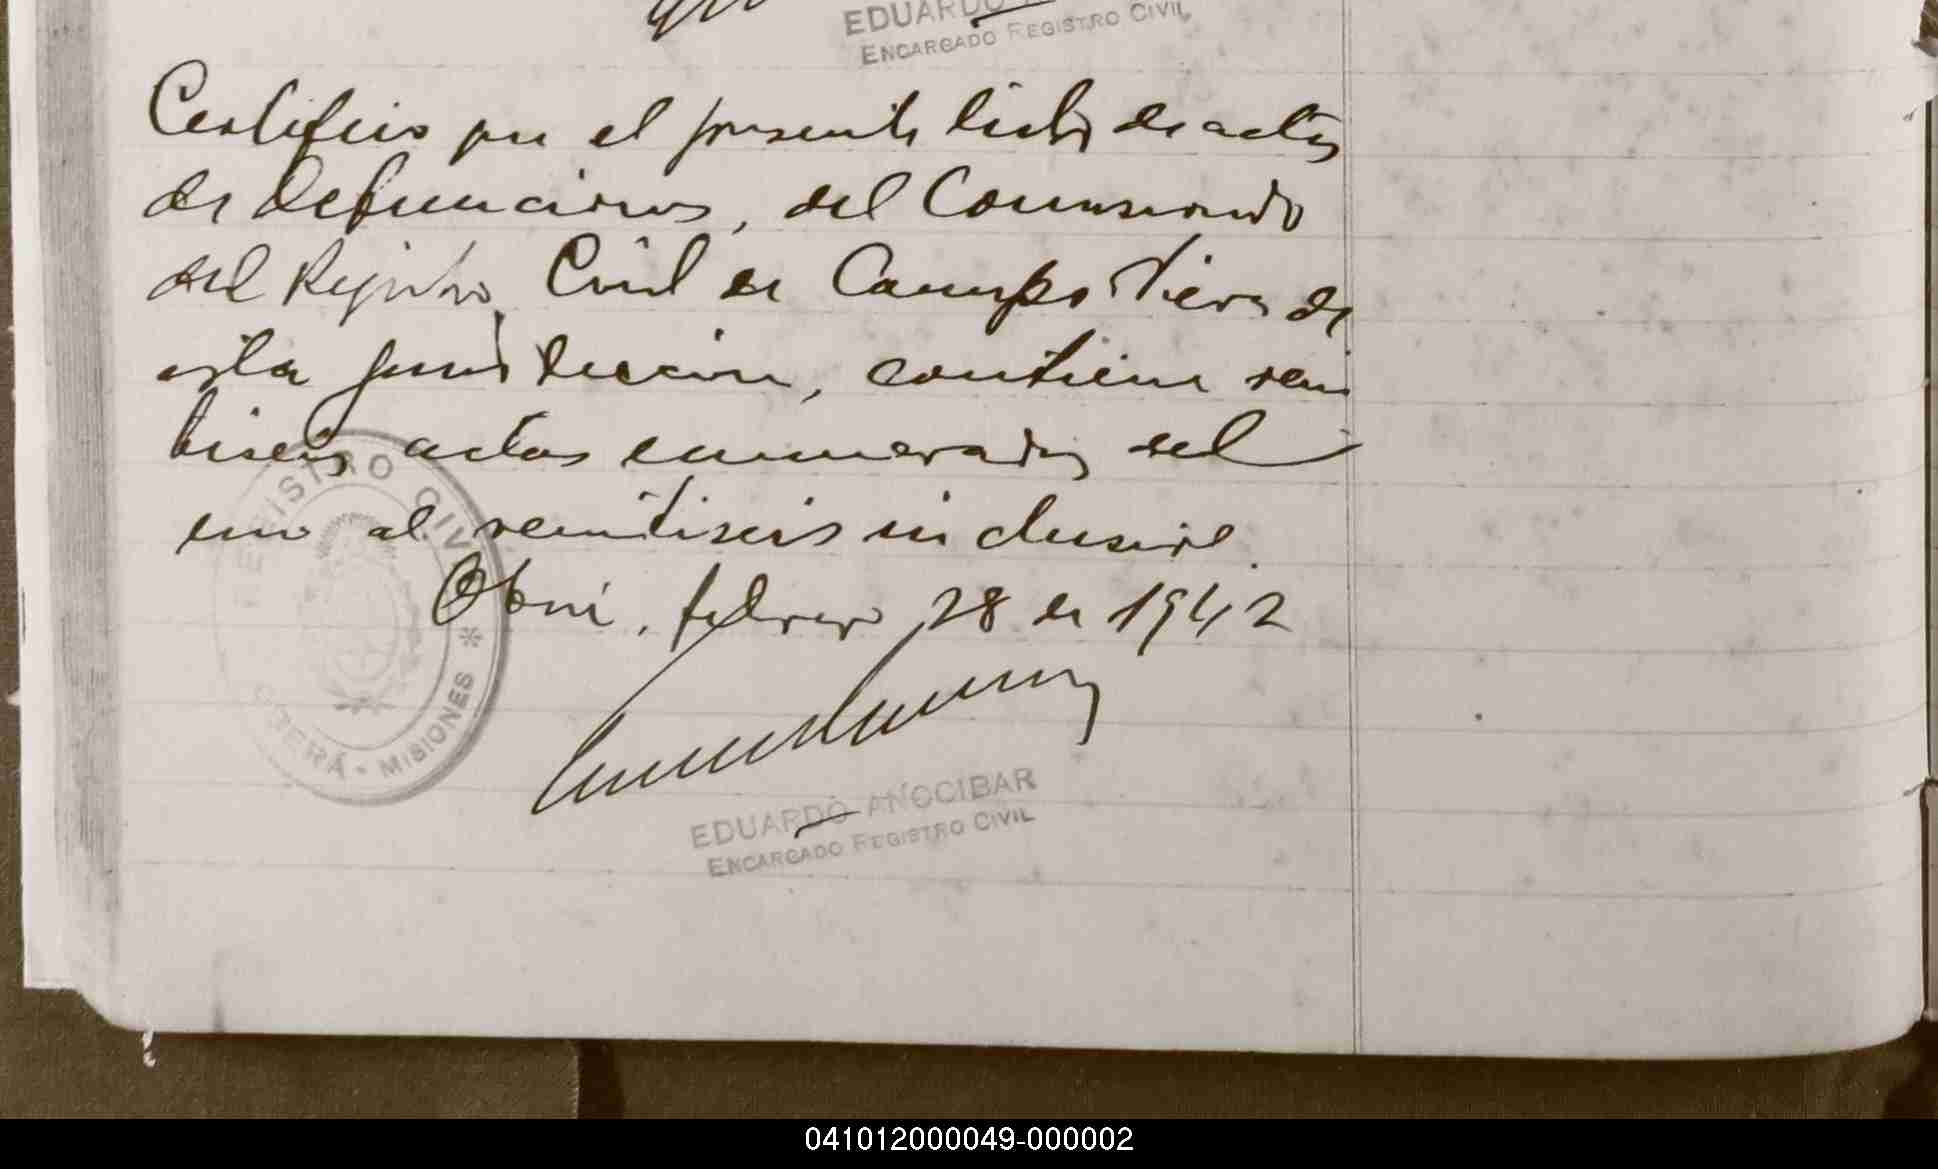 EDUARDO
ENCARGADO REGISTRO CIVIL
Certifico que el presente libro de actas
de defunciones, del Comisionado
del Registro Civil de Campo Viera de
esta jurisdiccion, contiene vein
tiseis actas enumeradas del
uno al veintiseis inclusive.
Oberá, febrero 28 de 1942
REGISTRO CIVIL
OBERÁ - MISIONES *
EDUARDO AÑOCIBAR
ENCARGADO REGISTRO CIVIL
041012000049-000002